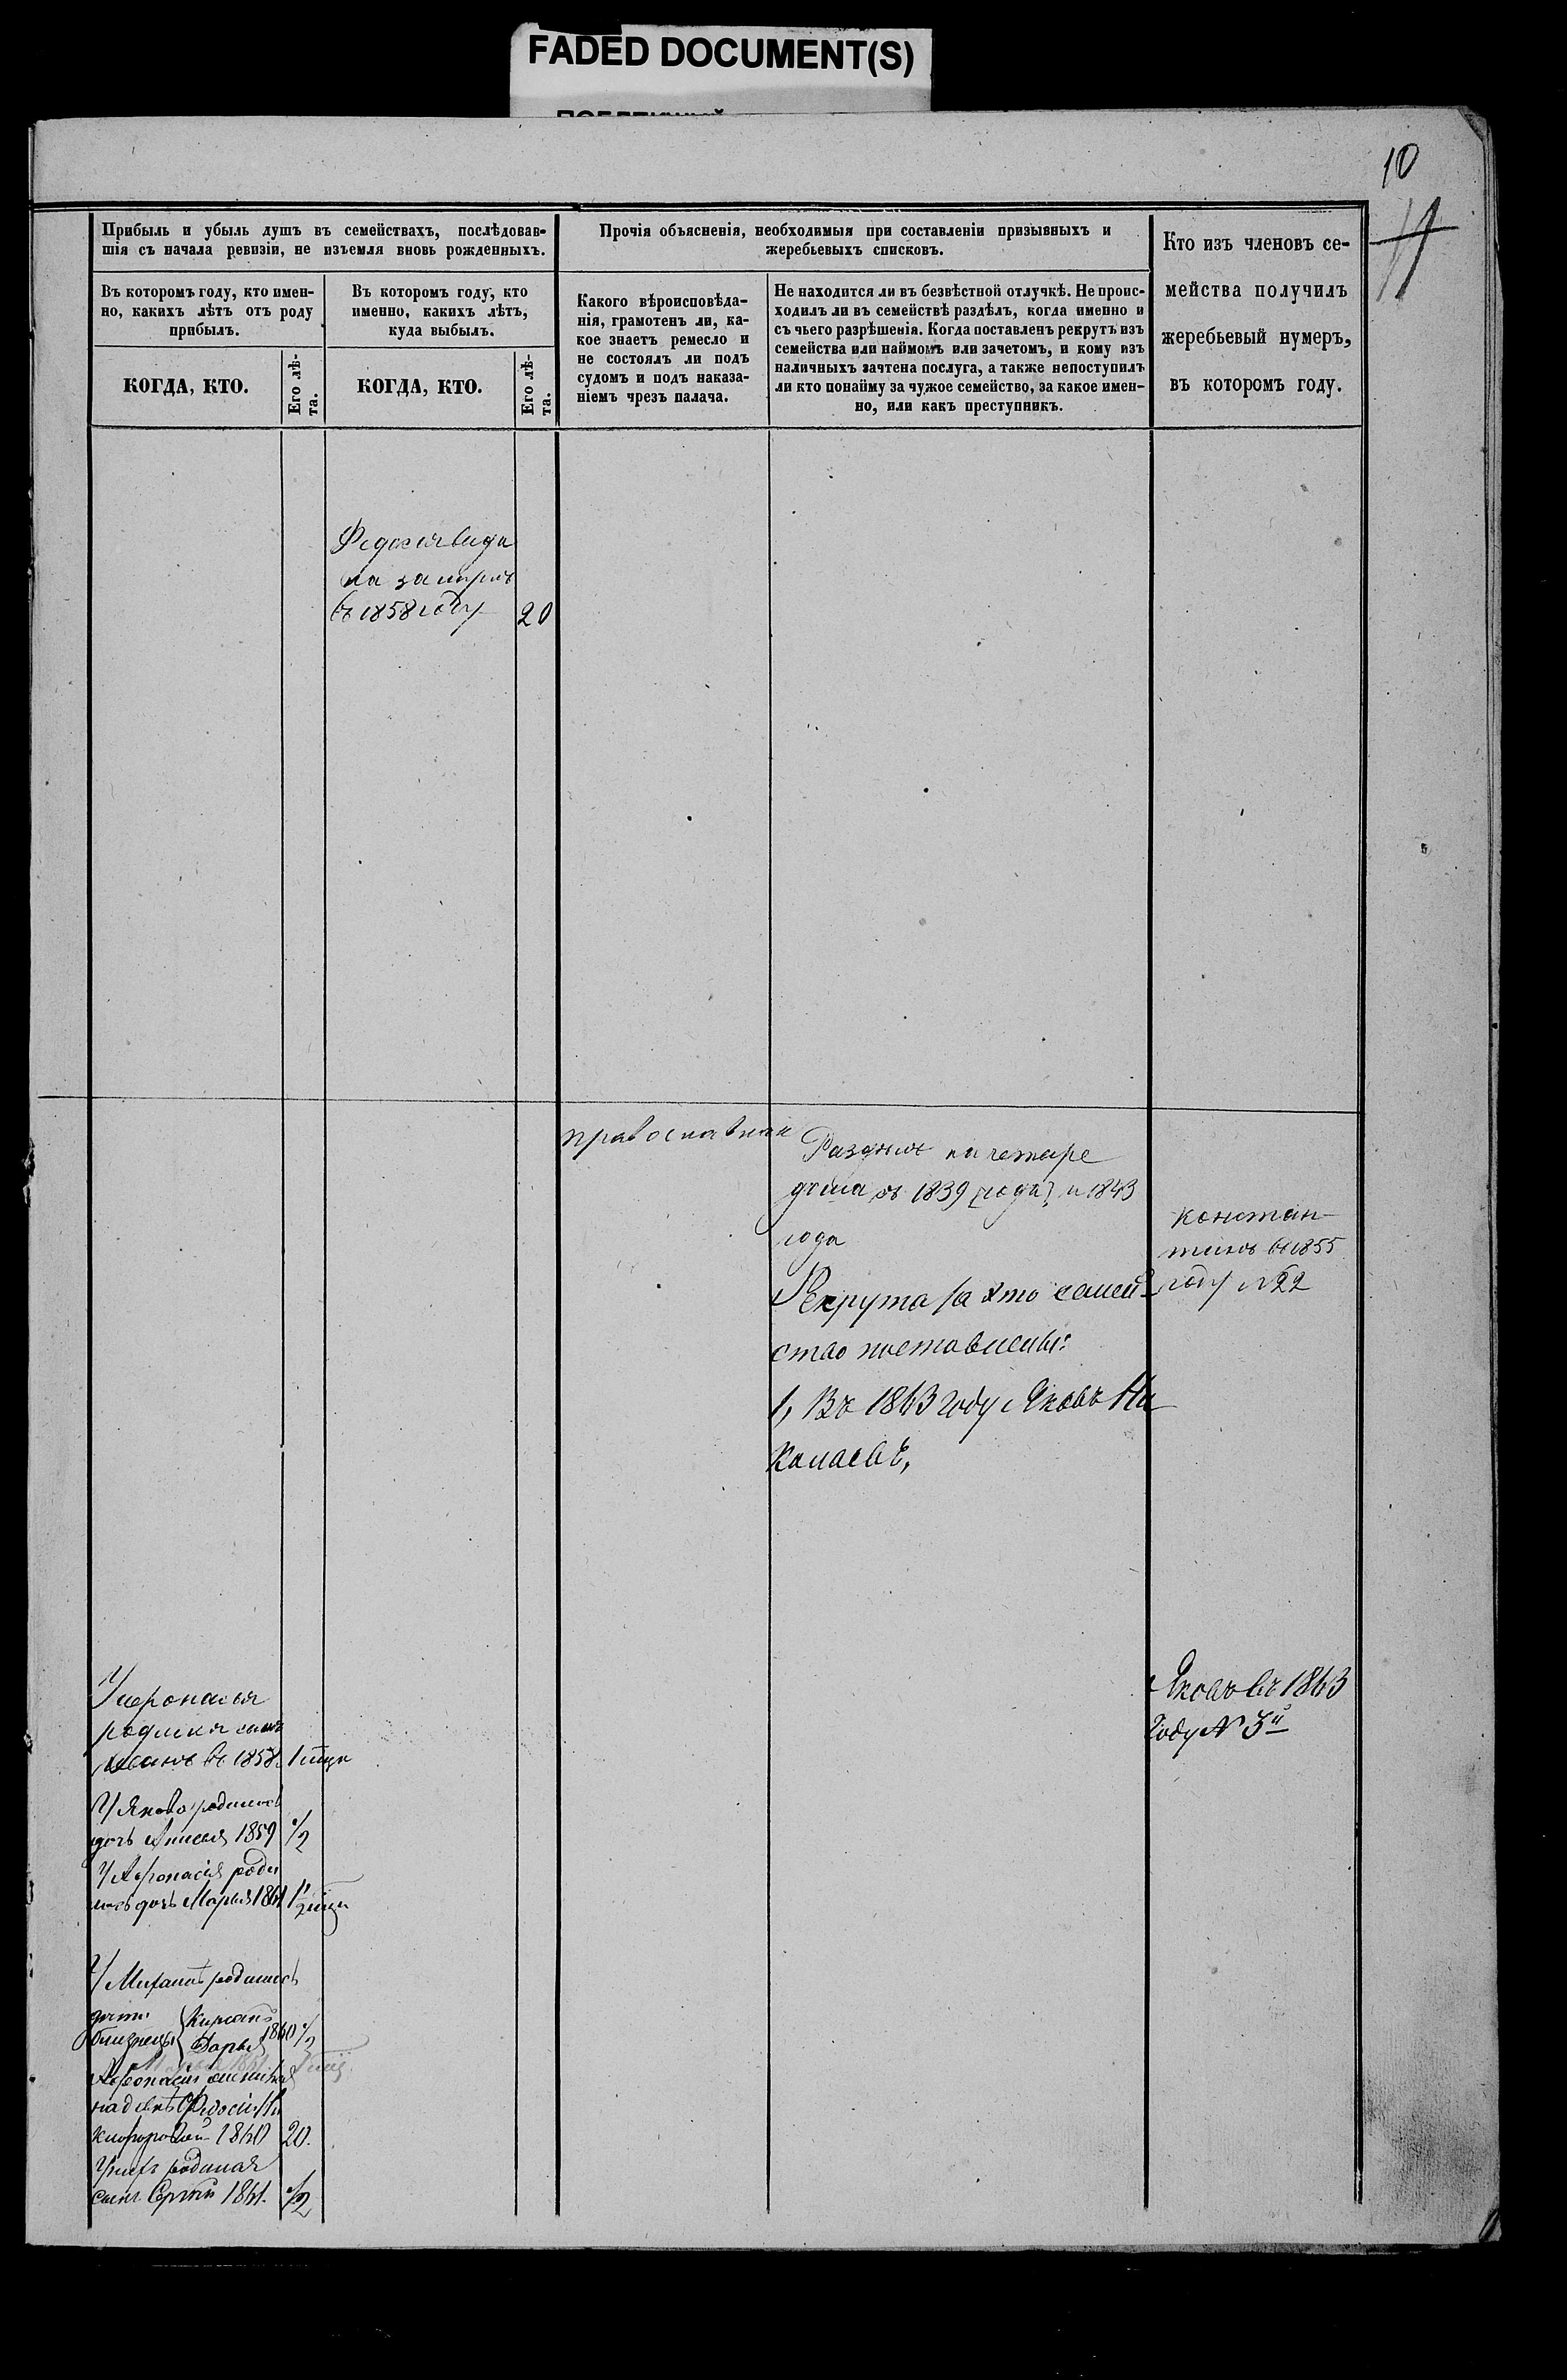 FADED DOCUMENT(S)
10
11
Прибыль и убыль душъ въ семействахъ, послѣдовав-
шія съ начала ревизіи, не изъемля вновь рожденныхъ.
Въ которомъ году, кто имен-
но, какихъ лѣтъ отъ роду
прибылъ.
КОГДА, КТО.
Его лѣ-
та.
Въ которомъ году, кто
именно, какихъ лѣтъ,
куда выбылъ.
КОГДА, КТО.
Его лѣ-
та.
Прочія объясненія, необходимыя при составленіи призывныхъ и
жеребьевыхъ списковъ.
Какого вѣроисповѣда-
нія, грамотенъ ли, ка-
кое знаетъ ремесло и
не состоялъ ли подъ
судомъ и подъ наказа-
ніемъ чрезъ палача.
Не находится ли въ безвѣстной отлучкѣ. Не проис-
ходилъ ли въ семействѣ раздѣлъ, когда именно и
съ чьего разрѣшенія. Когда поставленъ рекрутъ изъ
семейства или наймомъ или зачетомъ, и кому изъ
наличныхъ зачтена послуга, а также непоступилъ
ли кто понайму за чужое семейство, за какое имен-
но, или какъ преступникъ.
Кто изъ членовъ се-
мейства получилъ
жеребьевый нумеръ,
въ которомъ году.
въ 1858 году 20
православная
на четыре
съ 1839 года и 1843
года
Рекрута за это семей-
ство поставлены:
1, Въ 1863 году Яковъ Ни
колаевъ,
Констан-
тинъ въ 1855
году №22
Яковъ въ 1863
году № 3й
родился сынъ
въ 1858
У Якова родилась
дочь Анисья 1859 1/2
У Афонасія роди
лась дочь Марья 1861
У Михаила родились
дети близнецы Дарья 1860 1/2
Афонасій женился
на девке
1860 20.
У нихъ родился
сынъ Сергей 1861. 1/2